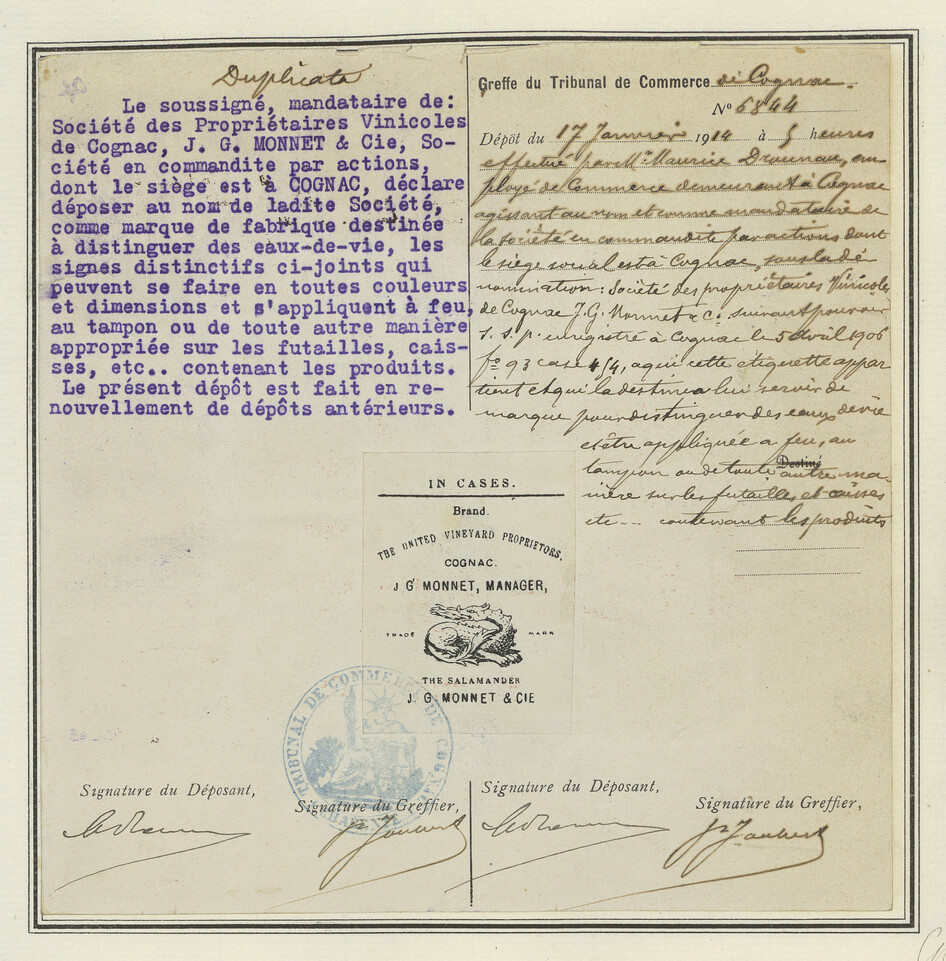 Duplicata
Le soussigné, mandataire de:
Société des Propriétaires Vinicoles
de Cognac, J. G. MONNET & Cie, So-
ciété en commandite par actions,
dont le siège est à COGNAC, déclare
déposer au nom de ladite Société,
comme marque de fabrique destinée
à distinguer des eaux-de-vie, les
signes distinctifs ci-joints qui
peuvent se faire en toutes couleurs
et dimensions et s'appliquent à feu,
au tampon ou de toute autre manière
appropriée sur les futailles, cais-
ses, etc.. contenant les produits.
Le présent dépôt est fait en re-
nouvellement de dépôts antérieurs.
Greffe du Tribunal de Commerce de Cognac.
N° 6844
Dépôt du 17 Janvier 1914 à 5 heures
effectué par Mr Maurice Drounau, em
ployé de Commerce demeurant à Cognac
agissant au nom et comme mandataire de
la société en commandite par actions dont
le siège social est à Cognac, sous la dé
nomination: Société des propriétaires Vinicoles
de Cognac J. G. Monnet & Co. suivant pouvoir
s. s. p. enregistré à Cognac le 5 avril 1906
fo 93 case 4/4, a qui cette étiquette appar
tient et qui la destine a lui servir de
marque pour distinguer des eaux de vie
et être appliquée a feu, au
tampon ou de toute autre ma-
Destiné
nière sur les futailles et caisses
etc... contenant les produits
IN CASES.
Brand.
THE UNITED VINEYARD PROPRIETORS,
COGNAC.
J G MONNET, MANAGER,
TRADE MARK
THE SALAMANDER
J. G. MONNET & CIE
TRIBUNAL DE COMMERCE DE COGNAC
CHARENTE
Signature du Déposant,
Signature du Greffier,
Joubert
Signature du Déposant,
Signature du Greffier,
Joubert